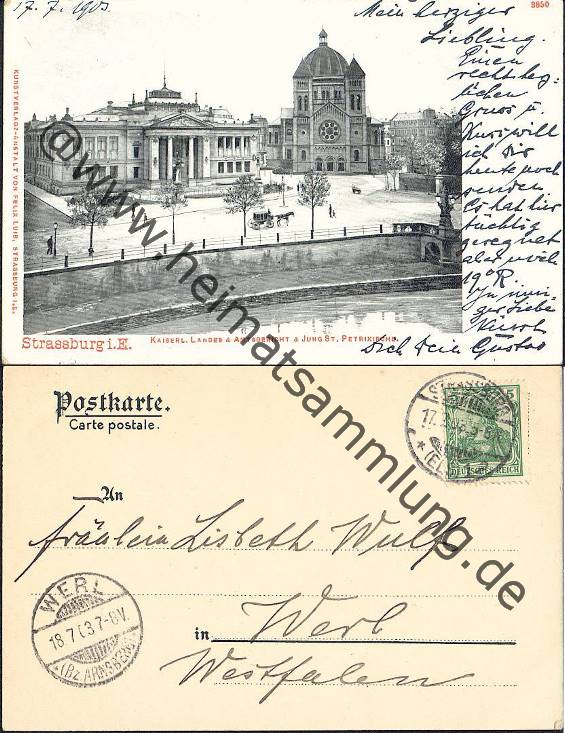 17. 7. 1903
3850
Mein herziger
Liebling.
Einen
recht herz
lichen
Gruss u.
Kuss will
ich Dir
heute noch
senden
Es hat hier
tüchtig
geregnet
aber noch
19° R.
In inni-
ger Liebe
küsst
Dich Dein Gustav
KUNSTVERLAGS-ANSTALT VON FELIX LUIB, STRASSBURG i.E.
Strassburg i.E.
KAISERL. LANDES & AMTSGERICHT & JUNG ST. PETRIKIRCHE.
@www.heimatsammlung.de
Postkarte.
Carte postale.
STRASSBURG
17.
(ELS.)
5
DEUTSCHES REICH
An
Fräulein Lisbeth Wulf
WERL
18 7 03 7-8 V.
*(Bz. ARNSBERG)
in Werl
Westfalen